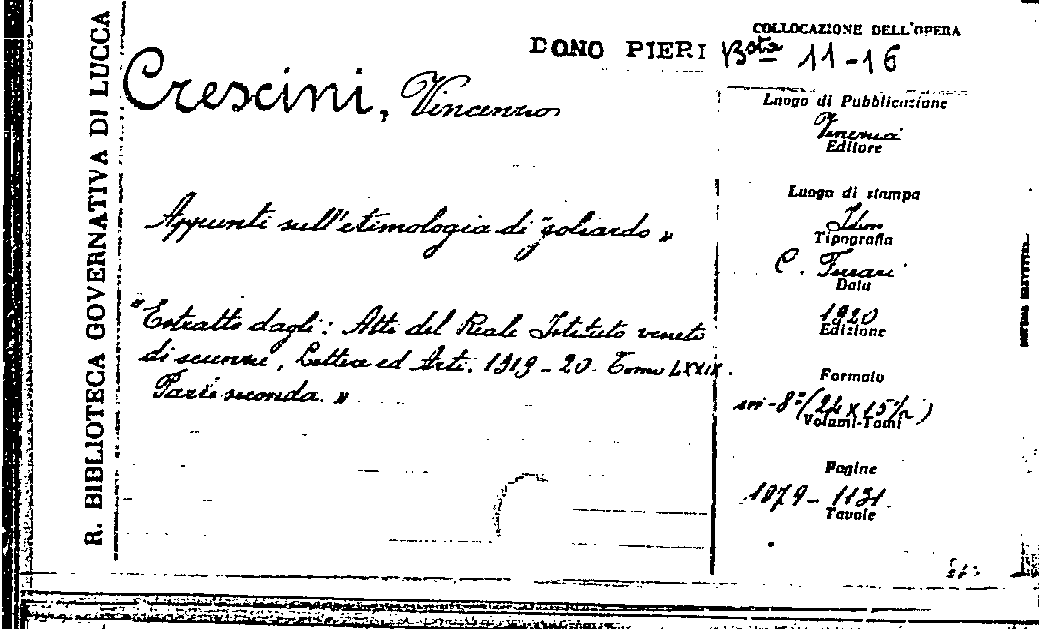 R. BIBLIOTECA GOVERNATIVA DI LUCCA
COLLOCAZIONE DELL'OPERA
DONO PIERI Bsta 11-16
Crescini, Vincenzo
Appunti sull'etimologia di "goliardo"
"Estratto dagli: Atti del Reale Istituto veneto
di scienze, Lettere ed Arti. 1919-20. Tomo LXXIX.
Parte seconda."
Luogo di Pubblicazione
Venezia
Editore
Luogo di stampa
Idem
Tipografia
C. Ferrari
Data
1920
Edizione
Formato
in-8º (24 x 15½)
Volumi-Tomi
Pagine
1079-1131
Tavole